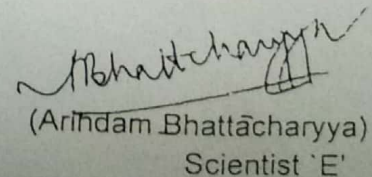 ABhattcharyya
(Arihdam Bhattacharyya)
Scientist `E'